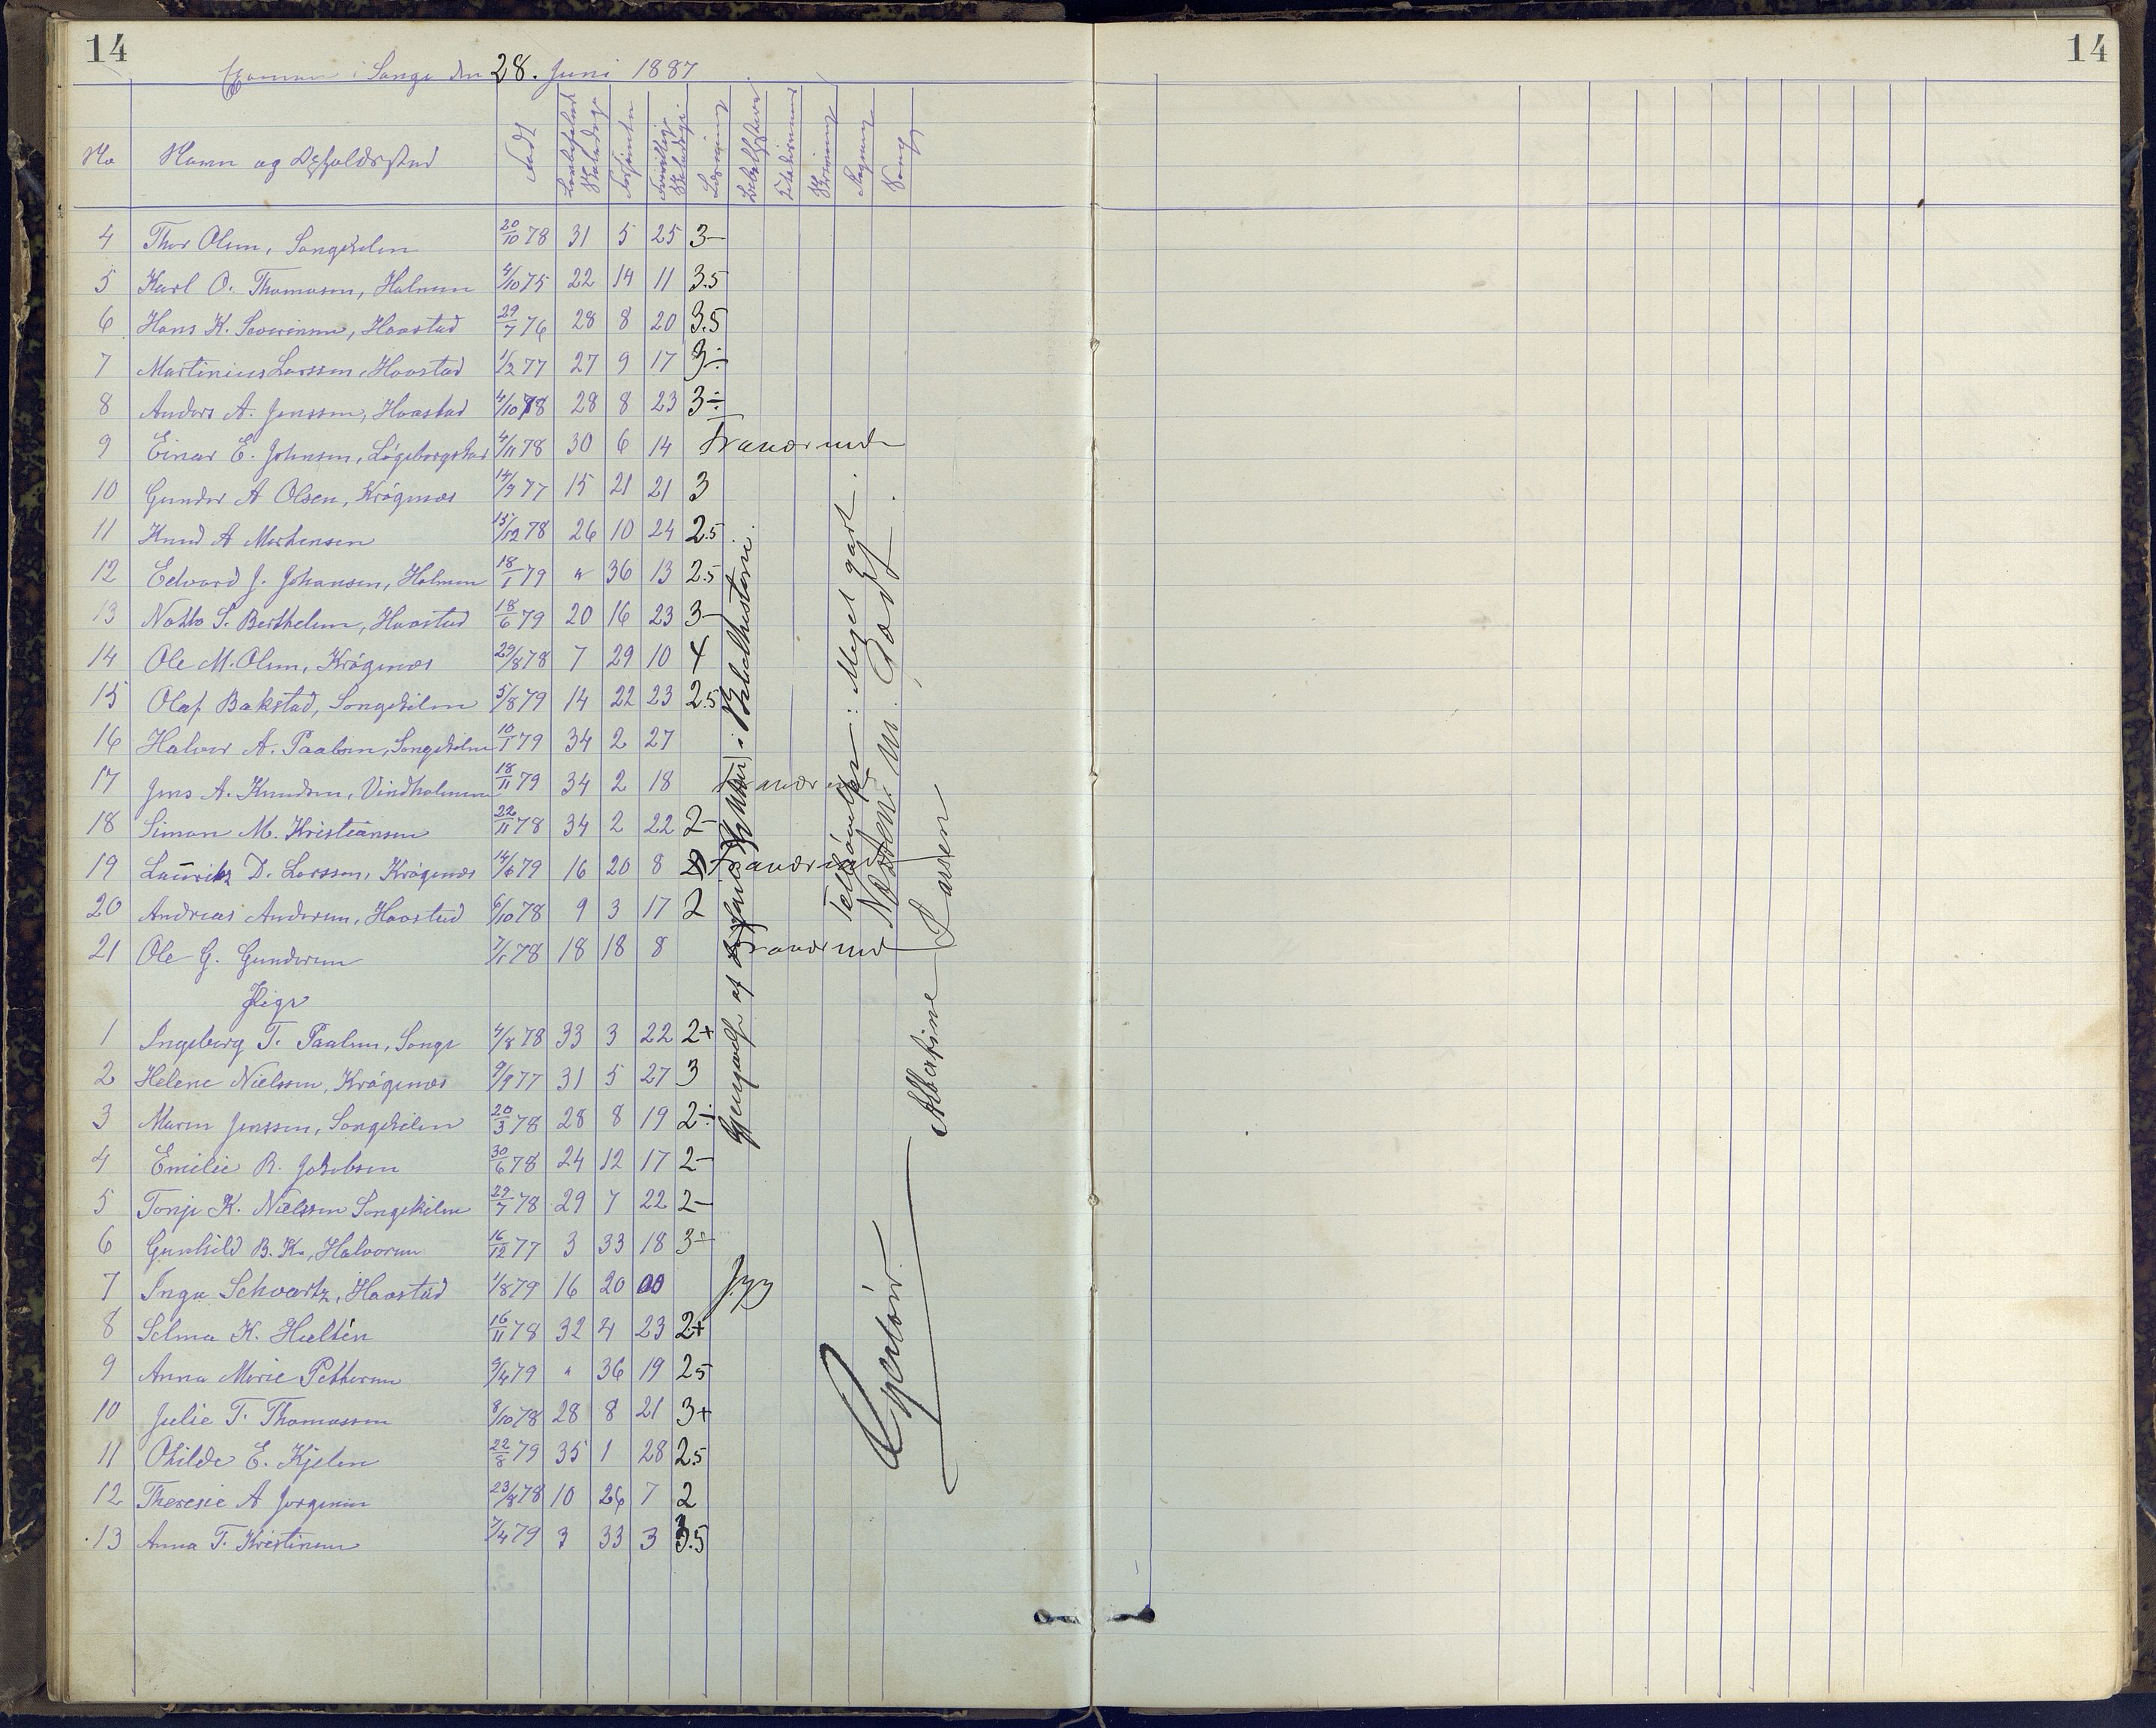 14
14
Examen i Songe den 28. Juni 1887
No Navn og Opholdssted Født Lovbefalede Skoledage Forsømte Frivillige Skoledage Læsning Bibelhistorie Skrivning Regning Sang
4 Thor Olsen, Songekilen 20/10 78 31 5 25 3-
5 Karl O. Thomasen, Holmen 4/10 75 22 14 11 3.5
6 Hans K. Severinsen, Haastad 29/7 76 28 8 20 3.5
7 Martinius Larssen, Haastad 1/2 77 27 9 17 3÷
8 Anders A. Jenssen, Haastad 4/10 78 28 8 23 3÷
9 Einar E. Johnsen, 4/11 78 30 6 14 Fraværende
10 Gunder A Olsen, Krøgenæs 14/9 77 15 21 21 3
11 Knud A Mortensen 15/12 78 26 10 24 2.5
12 Edvard J. Johansen, Holmen 18/1 79 " 36 13 2.5
13 Notto S. Berthelsen, Haastad 18/6 79 20 16 23 3-
14 Ole M. Olsen, Krøgenæs 29/8 78 7 29 10 4
15 Olaf Bakstad, Songekilen 5/8 79 14 22 23 2.5
16 Halvor A. Paalsen, Songekilen 10/1 79 34 2 27
17 Jens A. Knudsen, Vindholmen 18/11 79 34 2 18 Fraværende
18 Simon M. Kristiansen 22/11 78 34 2 22 2-
19 Lauritz D. Larssen, Krøgenæs 14/6 79 16 20 8 Fraværende
20 Andreas Andersen, Haastad 6/10 78 9 3 17 2
21 Ole G. Gundersen 7/1 78 18 18 8 Fraværende
Piger
1 Ingeborg T. Paalsen, Songe 4/8 78 33 3 22 2+
2 Helene Nielssen, Krøgenæs 9/9 77 31 5 27 3
3 Maren Jenssen, Songekilen 20/3 78 28 8 19 2÷
4 Emilie R. Jakobsen 30/6 78 24 12 17 2-
5 Tonje K. Nielssen Songekilen 29/7 78 29 7 22 2-
6 Gunhild B. K. Halvorsen 16/12 77 3 33 18 3÷
7 Inga Schwartz, Haastad 1/8 79 16 20 Syg
8 Selma K. Hultén 16/11 78 32 4 23 2+
9 Anna Marie Pettersen 9/4 79 " 36 19 2.5
10 Julie T. Thomassen 8/10 78 28 8 21 3+
11 Othilde E. Kjelsen 22/8 79 35 1 28 2.5
12 Theresie A Jørgensen 23/8 78 10 26 7 2
13 Anna T. Kristensen 7/4 79 3 33 3 3.5
Gjengivelse af Stykker i Bibelhistorie.
Telleøvelser: Meget godt.
Næsten M. Godt.
Albertine Larsen